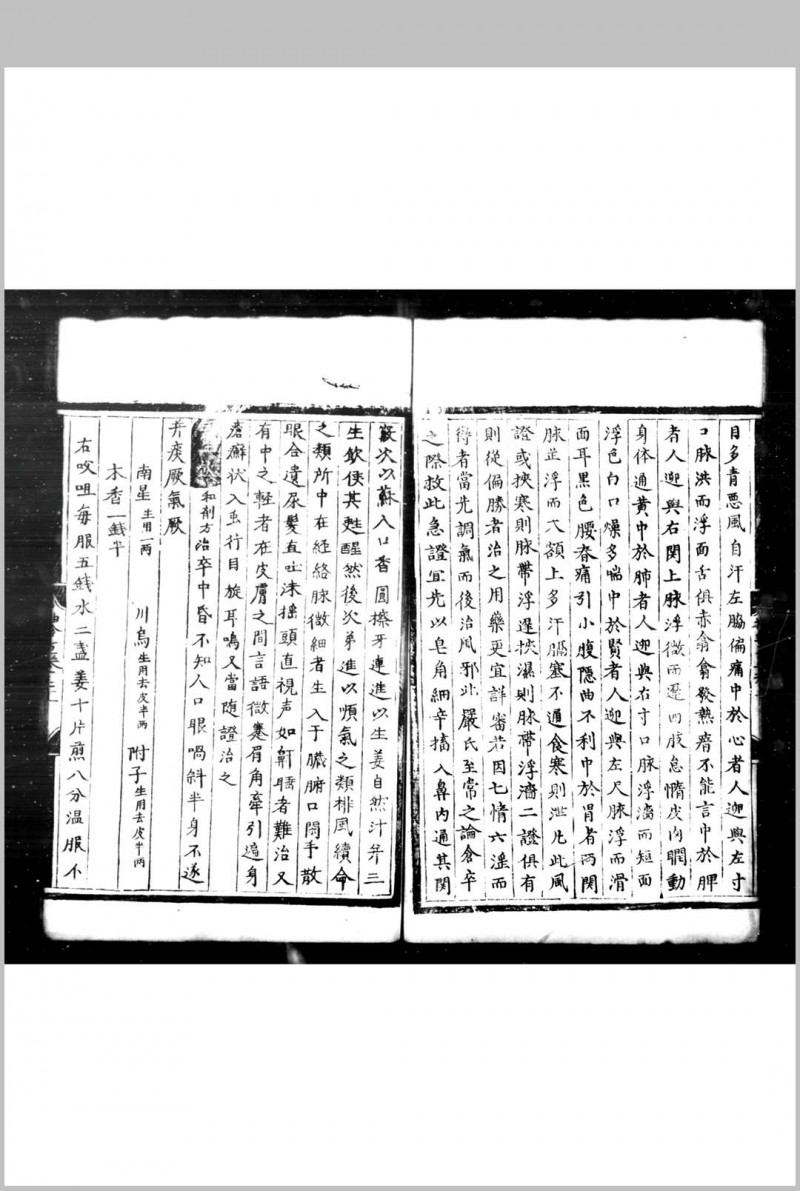 目多青悪風自汗左脇偏痛中於心者人迎與左寸
口脉洪而浮面舌俱赤翕翕發熱瘖不能言中於脾
者人迎與右関上脉浮微而遲四肢怠惰皮肉瞤動
身体通黄中於肺者人迎與右寸口脉浮濇而短面
浮色白口燥多喘中於賢者人迎與左尺脉浮而滑
面耳黑色腰脊痛引小腹隱曲不利中於胃者両関
脉並浮而大額上多汗膈塞不通食寒則泄凡此風
證或挾寒則脉帶浮遲挾濕則脉帶浮濇二證俱有
則從偏勝者治之用藥更宜詳審若因七情六滛而
得者當先調氣而後治風邪此嚴氏至當之論倉卒
之際救此急證宜先以皂角細辛搐入鼻内通其関
竅次以蘇入口香圓擦牙連進以生姜自然汁并三
生飲俟其甦醒然後次第進以順氣之類排風續命
之類所中在経絡脉微細者生入于臓腑口開手散
眼合遺尿髮直吐沫摇頭直視声如鼾睡者難治又
有中之輕者在皮膚之間言語微蹇眉角牽引遍身
瘡癬状入虫行目旋耳鳴又當随證治之
和剤方治卒中昏不知人口眼喎斜半身不遂
并痰厥氣厥
南星生用一両 川烏生用去皮半両 附子生用去皮半両
木香一錢半
右㕮咀毎服五錢水二盞姜十片煎八分温服不